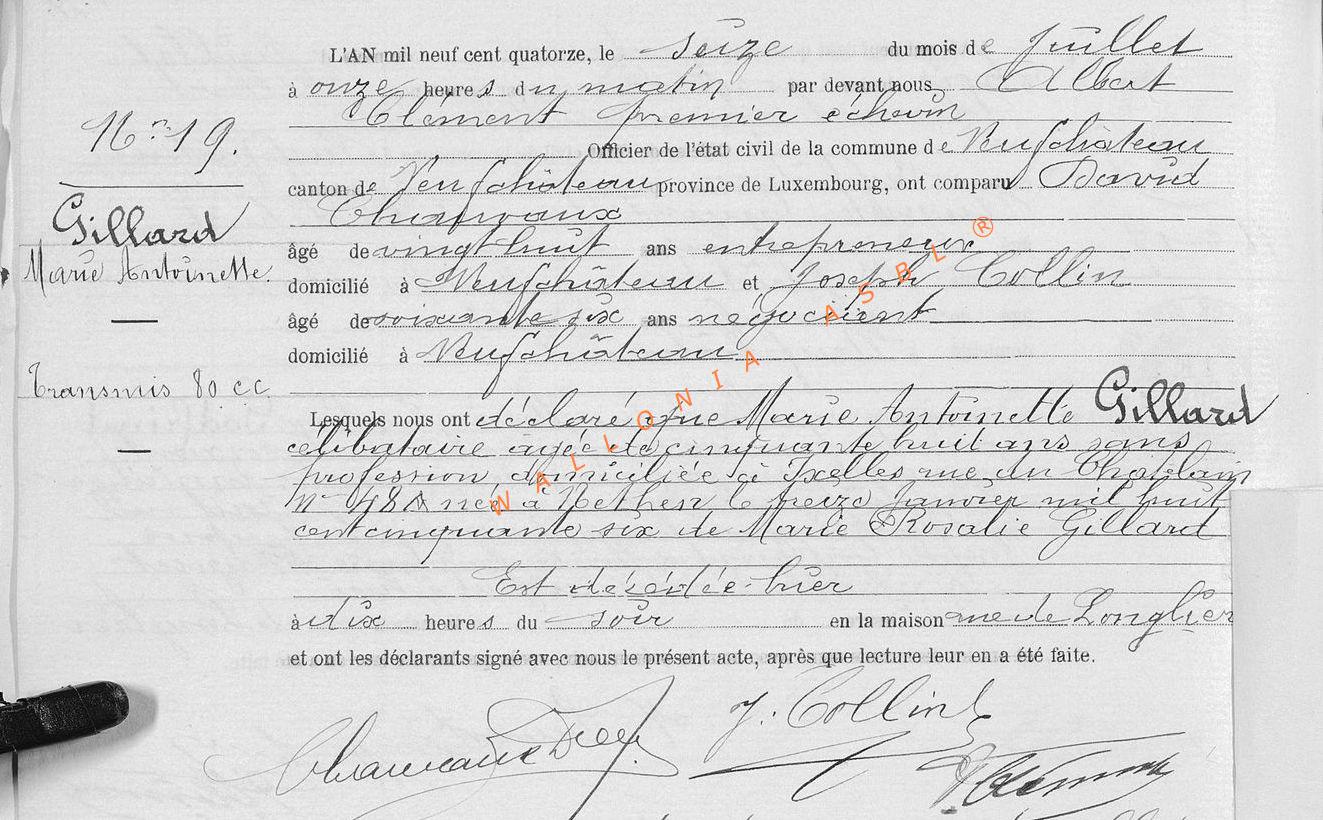 L'AN mil neuf cent quatorze, le seize du mois de Juillet
à onze heures du matin par devant nous Albert
Clément premier échevin
Officier de l'état civil de la commune de Neufchâteau
canton de Neufchâteau province de Luxembourg, ont comparu David
Charvaux
âgé de vingt huit ans entrepreneur
domicilié à Neufchâteau et Joseph Collin
âgé de soixante six ans négociant
domicilié à Neufchâteau
Lesquels nous ont déclaré que Marie Antoinette Gillard
célibataire âgée de cinquante huit ans sans
profession, domiciliée à Ixelles rue du Chatelain
N° 48A née à Nethen le treize Janvier mil huit
cent cinquante six de Marie Rosalie Gillard
Est décédée hier
à dix heures du soir en la maison rue de Longlier
et ont les déclarants signé avec nous le présent acte, après que lecture leur en a été faite.
J. Collin
N° 19.
Gillard
Marie Antoinette
Transmis 80 c.c.
WALLONIA ASBL ®